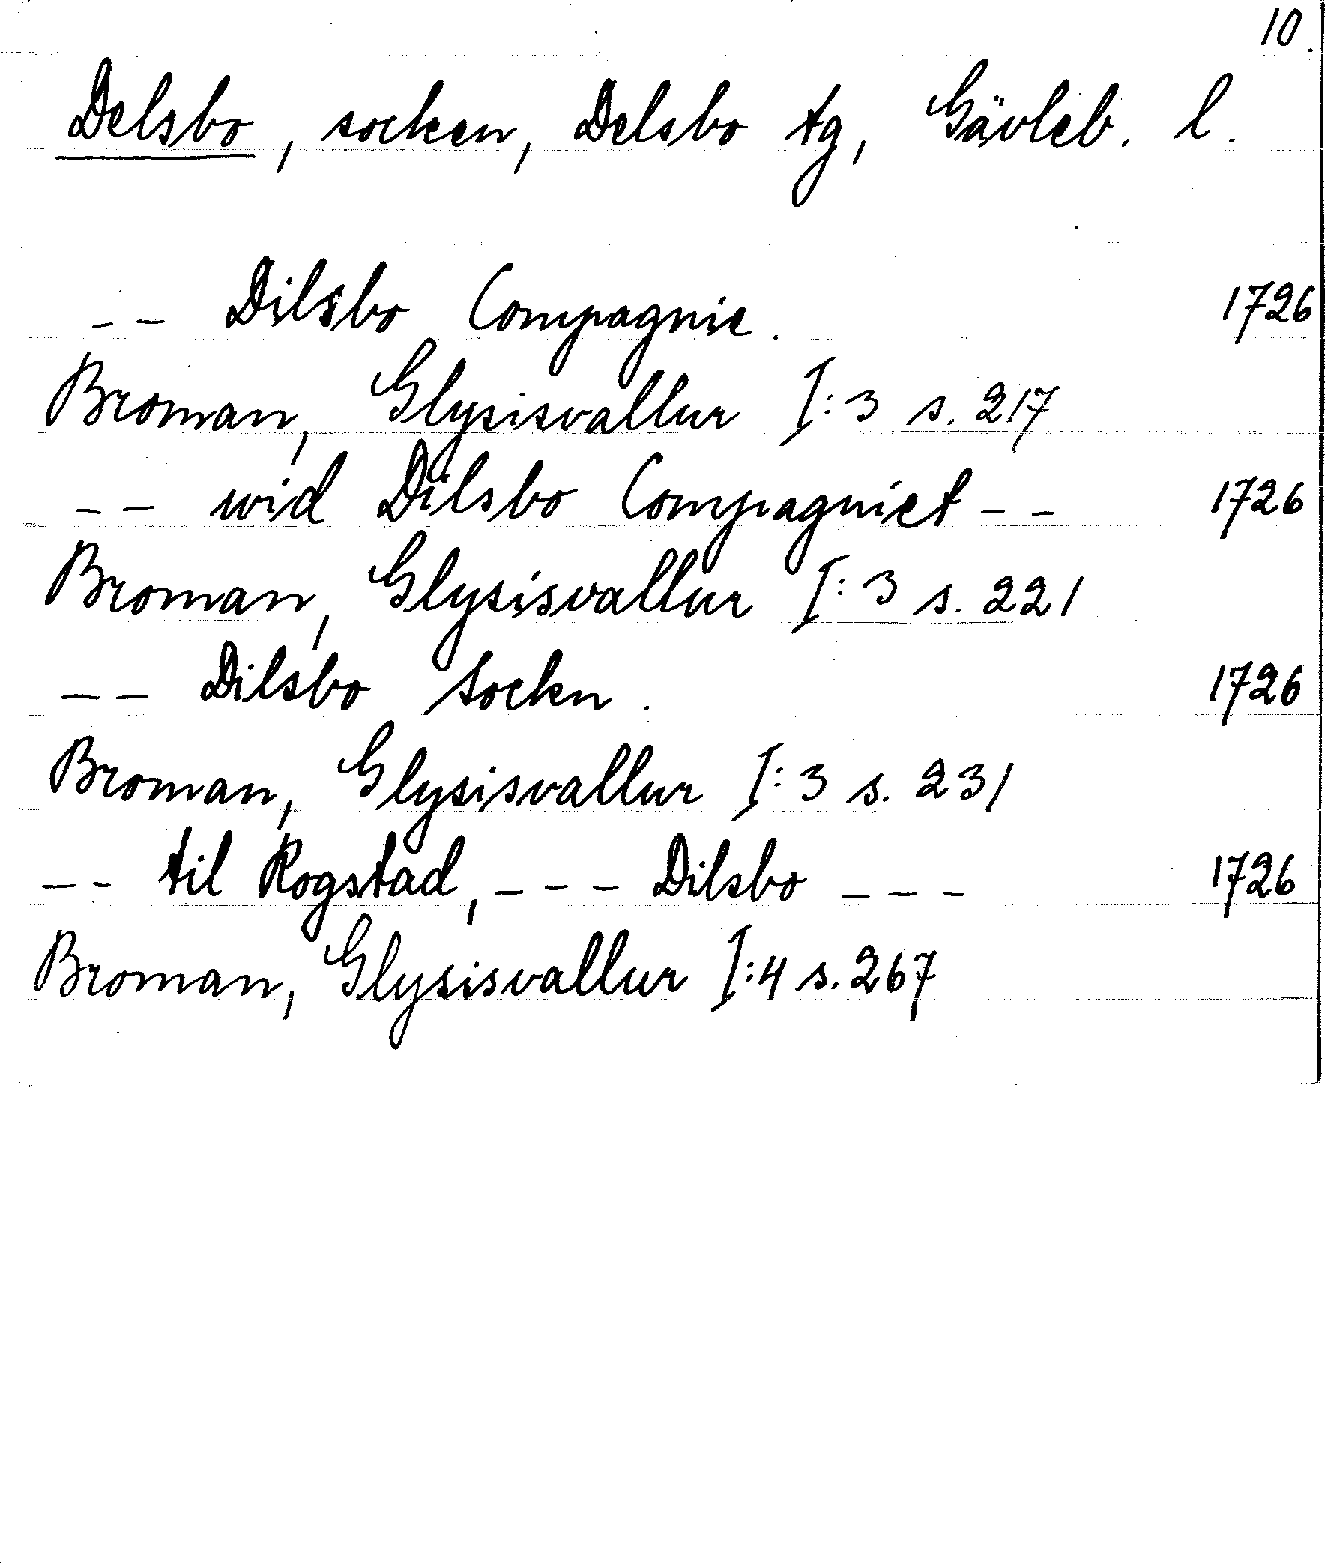 10.
Delsbo, socken, Delsbo tg, Gävleb. l.
-- Dilsbo Compagnie. 1726
Broman, Glysisvallur I:3 s. 217
-- wid Dilsbo Compagniet -- 1726
Broman, Glysisvallur I:3 s. 221
-- Dilsbo Sockn. 1726
Broman, Glysisvallur I:3 s. 231
-- til Rogstad, --- Dilsbo --- 1726
Broman, Glysisvallur I:4 s. 267